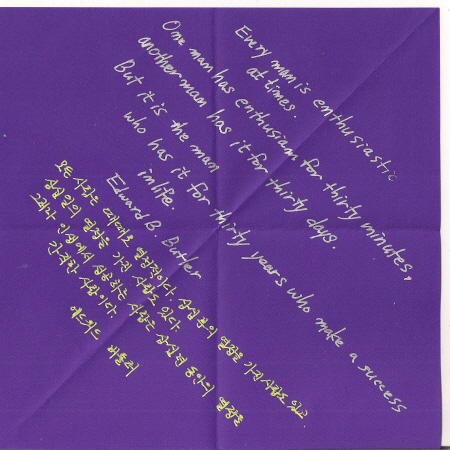 Every man is enthusiastic
at times.
One man has enthusiam for thirty minutes,
another man has it for thirty days.
But it is the man
who has it for thirty years who make a success
in life.
Edward B. Butler
모든 사람은 때때로 열정적이다. 삼십 분의 열정을 가진 사람도 있고
삼십 일의 열정을 가진 사람도 있다.
그러나 인생에서 성공하는 사람은 삼십 년 동안의 열정을
간직한 사람이다.
에드워드 버틀러